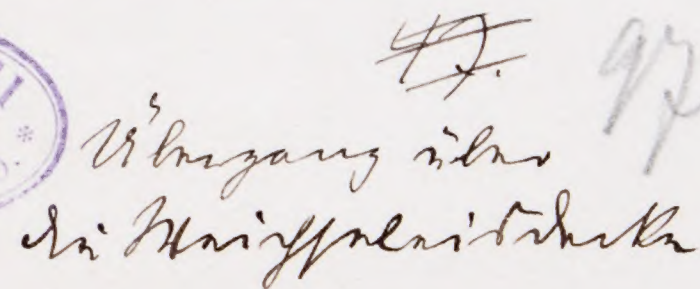 47.
97
Übergang über
die Weichseleisdecke